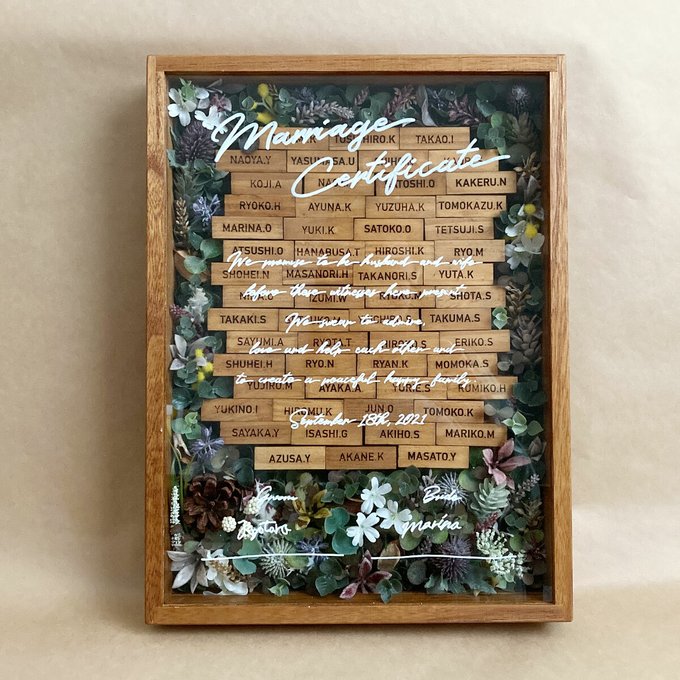 Marriage
Certificate
TAKAO.I
NAOYA.Y
KOJI.A KAKERU.N
RYOKO.H AYUNA.K YUZUHA.K TOMOKAZU.K
MARINA.O YUKI.K SATOKO.O TETSUJI.S
ATSUSHI.O HANABUSA.T HIROSHI.K RYO.M
We promise to be husband and wife
SHOHEI.N MASANORI.H TAKANORI.S YUTA.K
before these witnesses here present.
IZUMI.W RYOKO.M SHOTA.S
We swear to
TAKAKI.S TAKUMA.S
SAYUMI.A RYOTA.T ERIKO.S
love and help each other and
SHUHEI.H RYO.N RYAN.K MOMOKA.S
to create a peaceful happy family.
YUJIRO.M AYAKA.A YURIE.S KUMIKO.H
YUKINO.I HIROMU.K JUN.O TOMOKO.K
September 18th, 2021
SAYAKA.Y ISASHI.G AKIHO.S MARIKO.M
AZUSA.Y AKANE.K MASATO.Y
Groom Bride
Marina